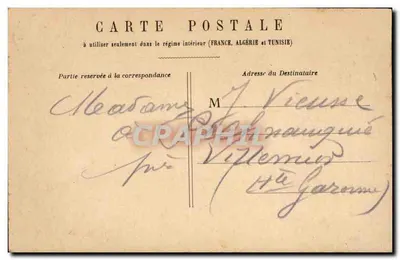 CARTE POSTALE
à utiliser seulement dans le régime intérieur (FRANCE, ALGÉRIE et TUNISIE)
Partie reservée à la correspondance
Adresse du Destinataire
Madame
M J Vieusse
près Villemur
Hte Garonne)